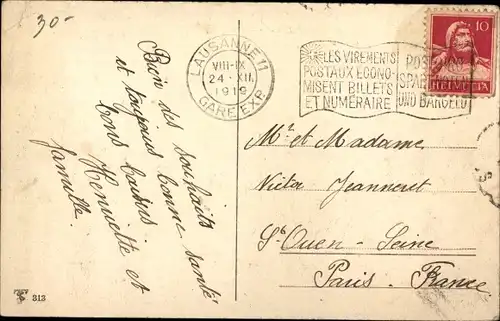 30-
LAUSANNE 11
VIII-IX
24 XII
1919
GARE EXP.
LES VIREMENTS
POSTAUX ECONO-
MISENT BILLETS
ET NUMÉRAIRE
POSTGIRO
SPART
UND BARGELD
10
HELVETIA
Bien des souhaits
et toujours bonne santé
bons baisers
Henriette et
famille.
Mr et Madame
Victor Jeanneret
St Ouen - Seine
Paris. France
313